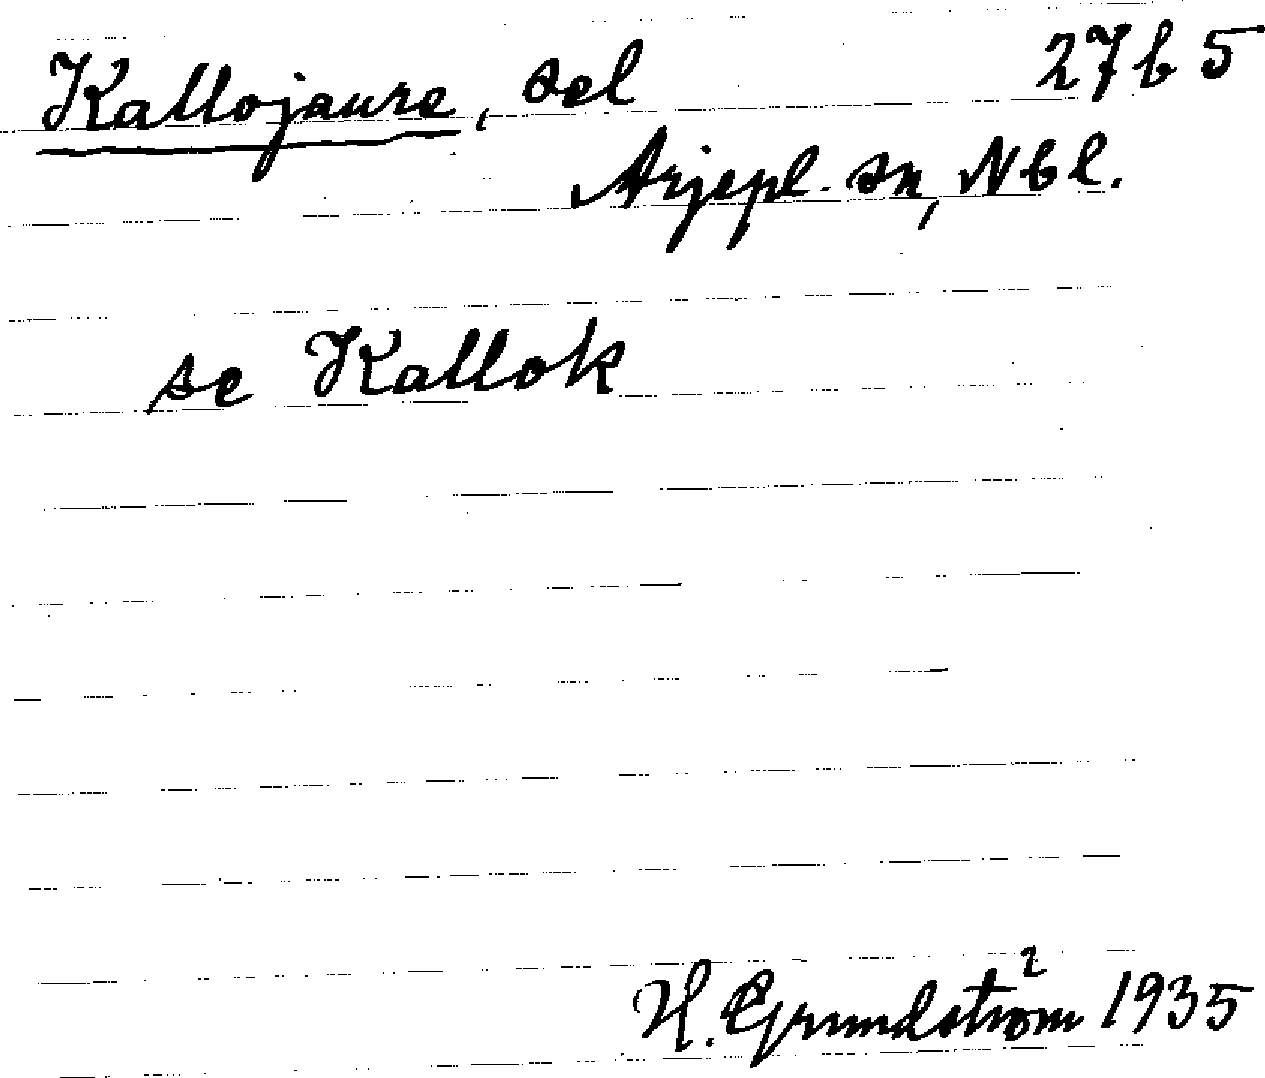 Kallojaure, sel 27b5
Arjepl. sn, Nbl.
se Kallok
H. Grundström 1935